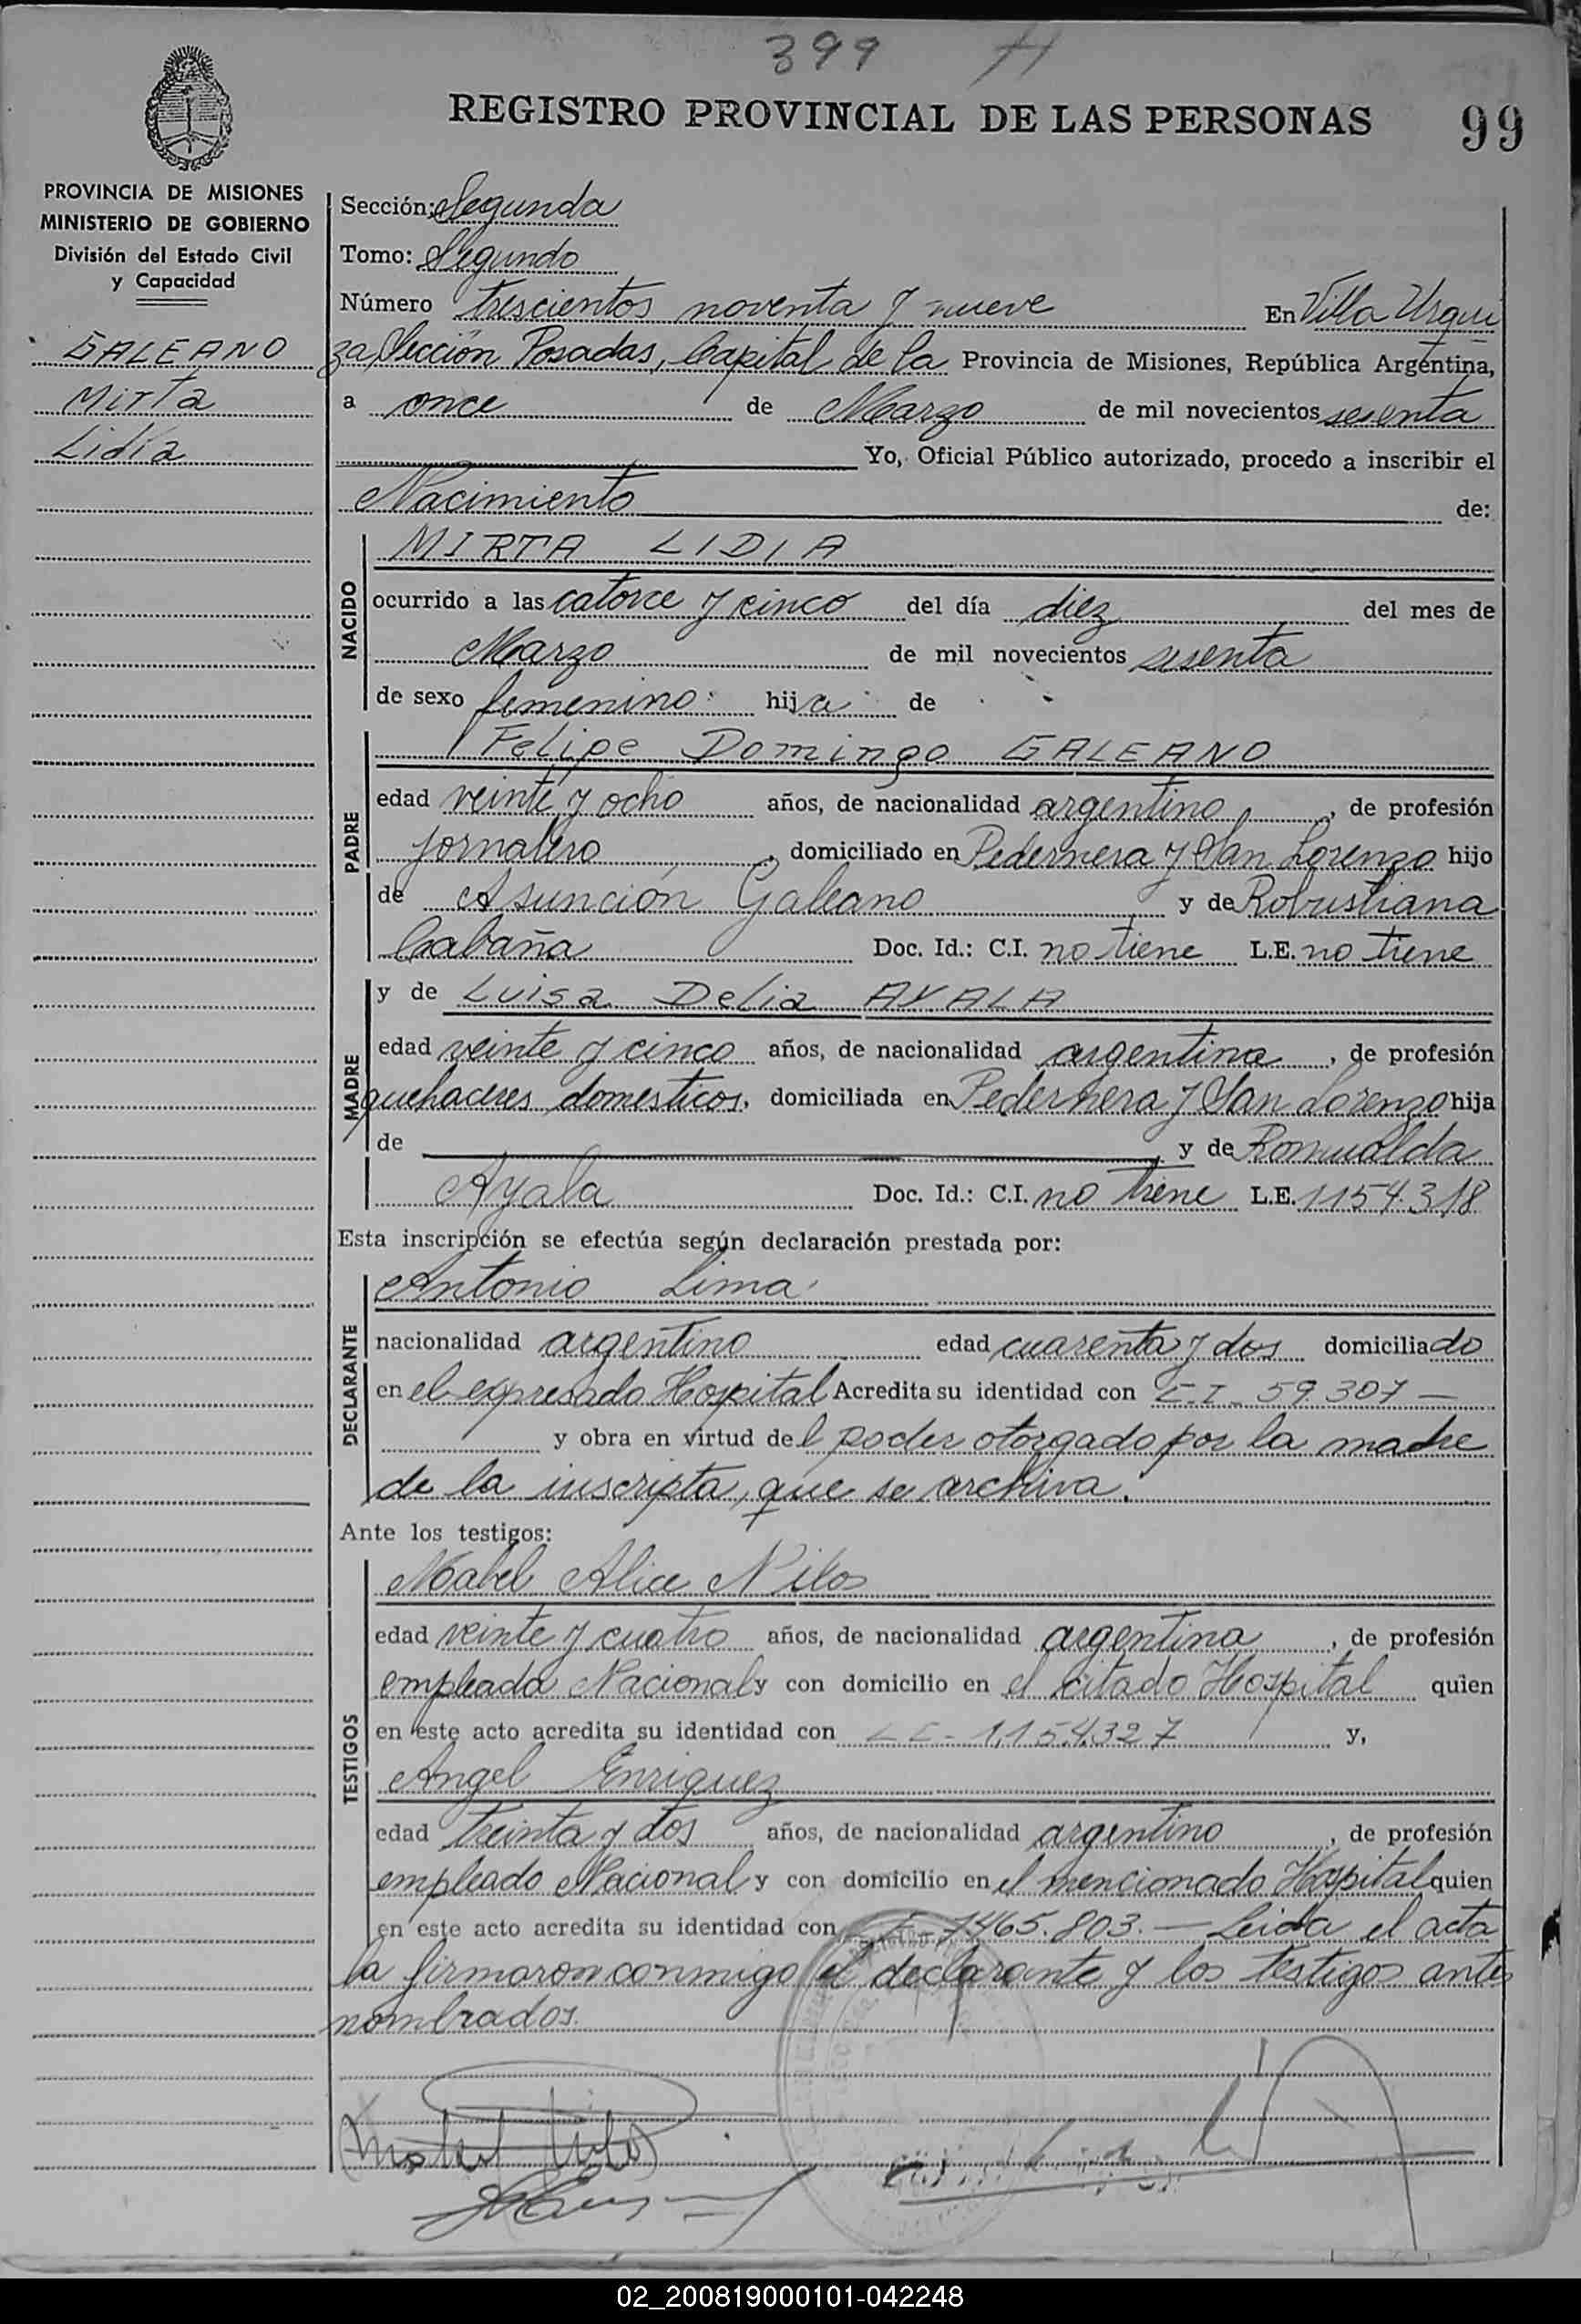 399 H
REGISTRO PROVINCIAL DE LAS PERSONAS 99
PROVINCIA DE MISIONES
MINISTERIO DE GOBIERNO
División del Estado Civil
y Capacidad
GALEANO
Mirta
Lidia
Sección: Segunda
Tomo: Segundo
Número trescientos noventa y nueve En Villa Urqui
za Sección Posadas, Capital de la Provincia de Misiones, República Argentina,
a once de Marzo de mil novecientos sesenta
Yo, Oficial Público autorizado, procedo a inscribir el
Nacimiento de:
NACIDO
MIRTA LIDIA
ocurrido a las catorce y cinco del día diez del mes de
Marzo de mil novecientos sesenta
de sexo femenino hija de
PADRE
Felipe Domingo GALEANO
edad veinte y ocho años, de nacionalidad argentino, de profesión
jornalero, domiciliado en Pedernera y San Lorenzo hijo
de Asunción Galeano y de Robustiana
Cabaña Doc. Id.: C.I. no tiene L.E. no tiene
MADRE
y de Luisa Delia AYALA
edad veinte y cinco años, de nacionalidad argentina, de profesión
quehaceres domesticos, domiciliada en Pedernera y San Lorenzo hija
de y de Romualda
Ayala Doc. Id.: C.I. no tiene L.E. 1154.318
Esta inscripción se efectúa según declaración prestada por:
DECLARANTE
Antonio Lima
nacionalidad argentino edad cuarenta y dos domiciliado
en el expresado Hospital Acredita su identidad con C.I - 59.307 —
y obra en virtud del poder otorgado por la madre
de la inscripta, que se archiva.
Ante los testigos:
TESTIGOS
Mabel Alice Nilos
edad veinte y cuatro años, de nacionalidad argentina, de profesión
empleada Nacional y con domicilio en el citado Hospital quien
en este acto acredita su identidad con LC - 1.154.327 y,
Angel Enriquez
edad treinta y dos años, de nacionalidad argentino, de profesión
empleado Nacional y con domicilio en el mencionado Hospital quien
en este acto acredita su identidad con 7465.803. — Leida el acta
la firmaron conmigo el declarante y los testigos antes
nombrados.
02_200819000101-042248